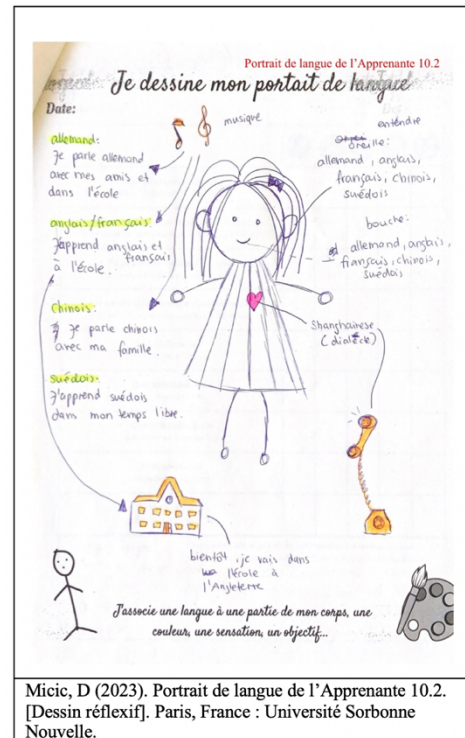 Portrait de langue de l'Apprenante 10.2
Je dessine mon portait de langue
Date:
musique
allemand:
Je parle allemand
avec mes amis et
dans l'école
anglais/français:
J'apprend anglais et
français
à l'école.
Chinois:
Je parle chinois
avec ma famille.
suédois:
J'apprend suédois
dans mon temps libre.
entendre
oreille:
allemand, anglais,
français, chinois,
suédois
bouche:
allemand, anglais,
français, chinois,
suédois
Shanghainese
(dialeck)
bientôt, je vais dans
l'école à
l'Angleterre
J'associe une langue à une partie de mon corps, une
couleur, une sensation, un objectif...
Micic, D (2023). Portrait de langue de l'Apprenante 10.2.
[Dessin réflexif]. Paris, France : Université Sorbonne
Nouvelle.